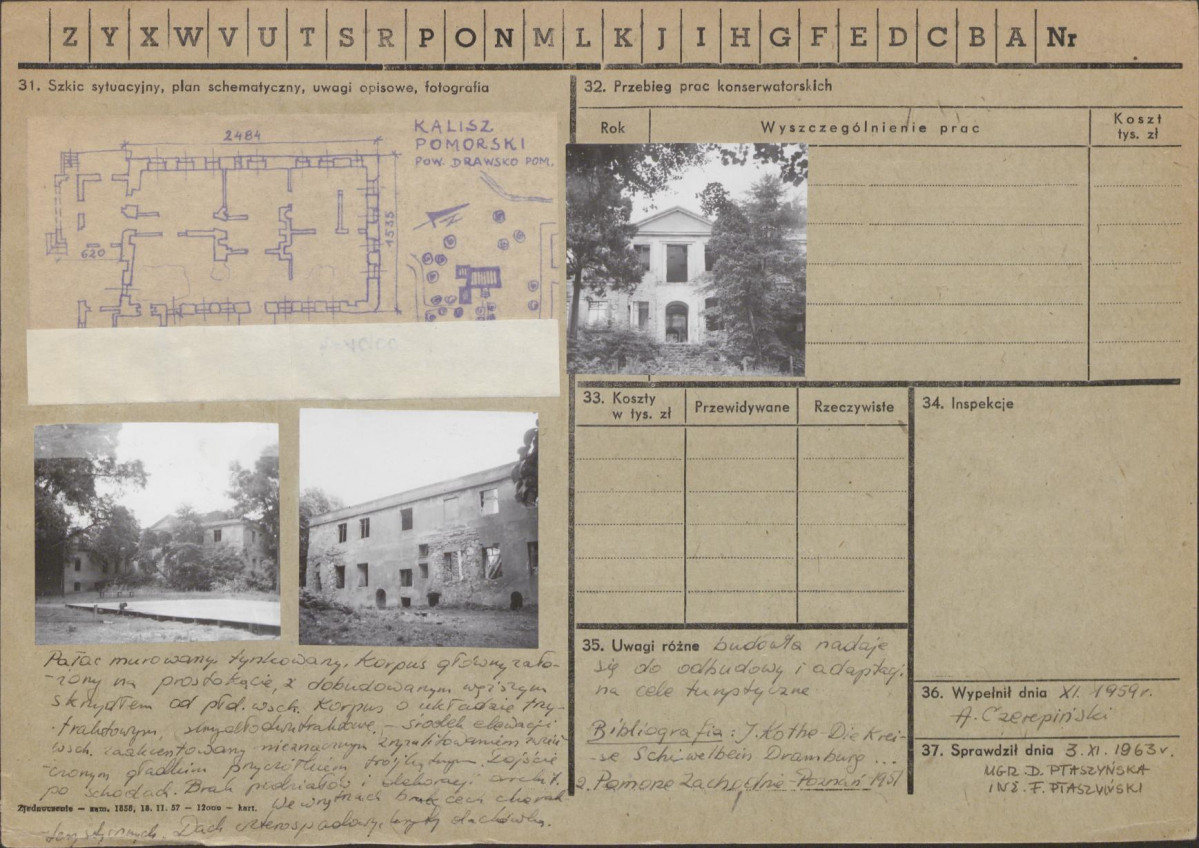 Z Y X W V U T S R P O N M L K J I H G F E D C B A Nr
31. Szkic sytuacyjny, plan schematyczny, uwagi opisowe, fotografia
2484
KALISZ
POMORSKI
POW. DRAWSKO POM.
1535
620
Pałac murowany, tynkowany. Korpus główny zało-
-żony na prostokącie, z dobudowanym węższym
skrzydłem od płd. wsch. Korpus o układzie trzy-
traktowym, skrzydło dwutraktowe. – środek elewacji
wsch. zaakcentowany nieznacznym zryzalitowaniem zwień-
czonym gładkim przyczółkiem trójkątnym. Wejście
po schodach. Brak podziałów i dekoracji archit.
We wnętrzach brak cech charak
terystycznych. Dach czterospadowy, kryty dachówką.
Zjednoczenie – zam. 1858, 18. 11. 57 – 12000 – kart.
32. Przebieg prac konserwatorskich
Rok Wyszczególnienie prac Koszt tys. zł
33. Koszty w tys. zł Przewidywane Rzeczywiste
34. Inspekcje
35. Uwagi różne budowla nadaje
się do odbudowy i adaptacji
na cele turystyczne
Bibliografia: J. Kothe-Die Krei-
se Schivelbein Dramburg ...
2. Pomorze Zachodnie – Poznań 1951
36. Wypełnił dnia XI. 1959 r.
A. Czerepiński
37. Sprawdził dnia 3. XI. 1963 r.
MGR. D. PTASZYŃSKA
INŻ. F. PTASZYŃSKI